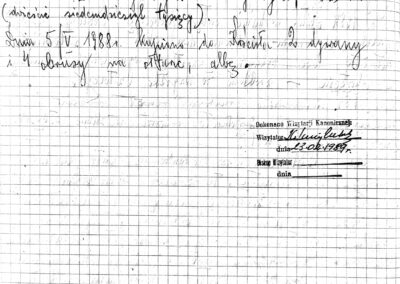 (dwieście siedemdziesiąt tysięcy).
Dnia 5.V 1988r. kupiono do Kościoła 2 dywany
i 4 obrusy na ołtarz, albę.
Dokonano Wizytacji Kanonicznej
Wizytator
dnia 1989 r.
Biskup Wizytator
dnia